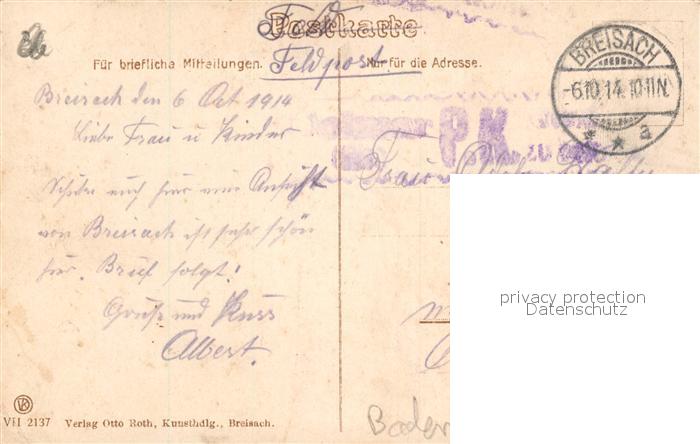 Feld
Postkarte
Feldpost
Für briefliche Mitteilungen.
Nur für die Adresse.
BREISACH
-6.10.14.10-11N.
* ★ a
P.K.
Breisach den 6 Oct 1914
Liebe Frau u Kinder
Schicke euch hier eine Ansicht
von Breisach ist sehr schön
hier. Brief folgt!
Gruß und Kuss
Albert.
Frau
privacy protection
Datenschutz
Baden
VII 2137 Verlag Otto Roth, Kunsthdlg., Breisach.